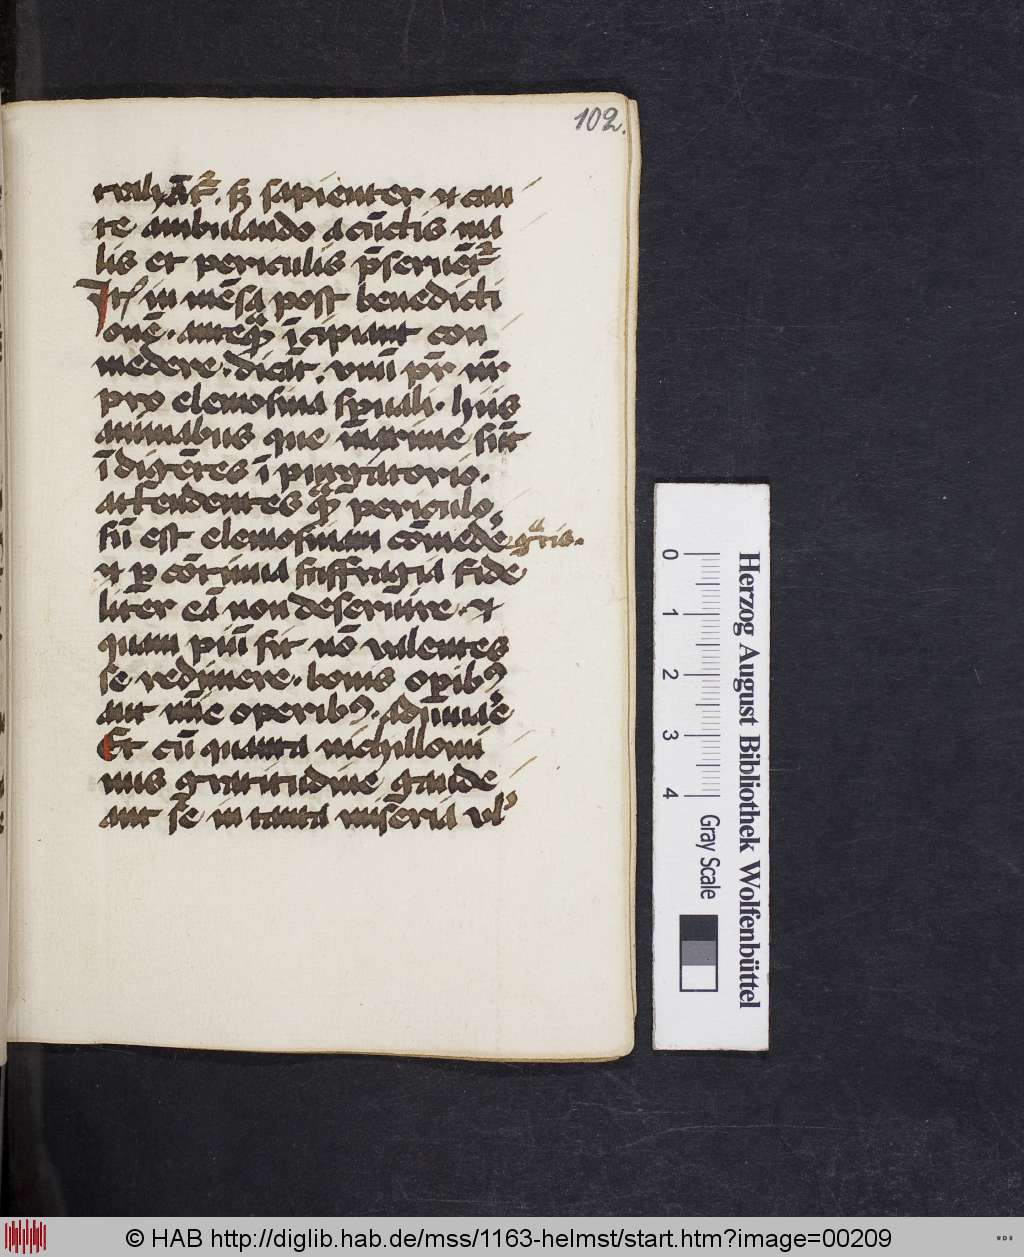 102.
sapienter et cau
te ambulando a cūctis ma
lis et periculis p̄seruēt᷑
Itē in mēsa post benedicti
onē. anteqᷓ ī cipiant con
medere. dicāt. vnū pr̄ nr̄
pro elemosina sp̄uali. hiis
animabus que maxime sūt
ī digētes ī purgatorio.
attendentes qᷓ periculo
sū est elemosinam cōmedeͤ gͣtis.
et ꝓ cōtinua suffragia fide
liter eā non deseruire. et
quam piū sit nō valentes
se redimere. bonis oꝑibꝰ
aut mīe operibꝰ. adiuuaͤe
Et cū quanta nichillomi
nus gratitudine gaude
ant se in tanta miseria vl'
Herzog August Bibliothek Wolfenbüttel
0 1 2 3 4
Gray Scale
© HAB http://diglib.hab.de/mss/1163-helmst/start.htm?image=00209